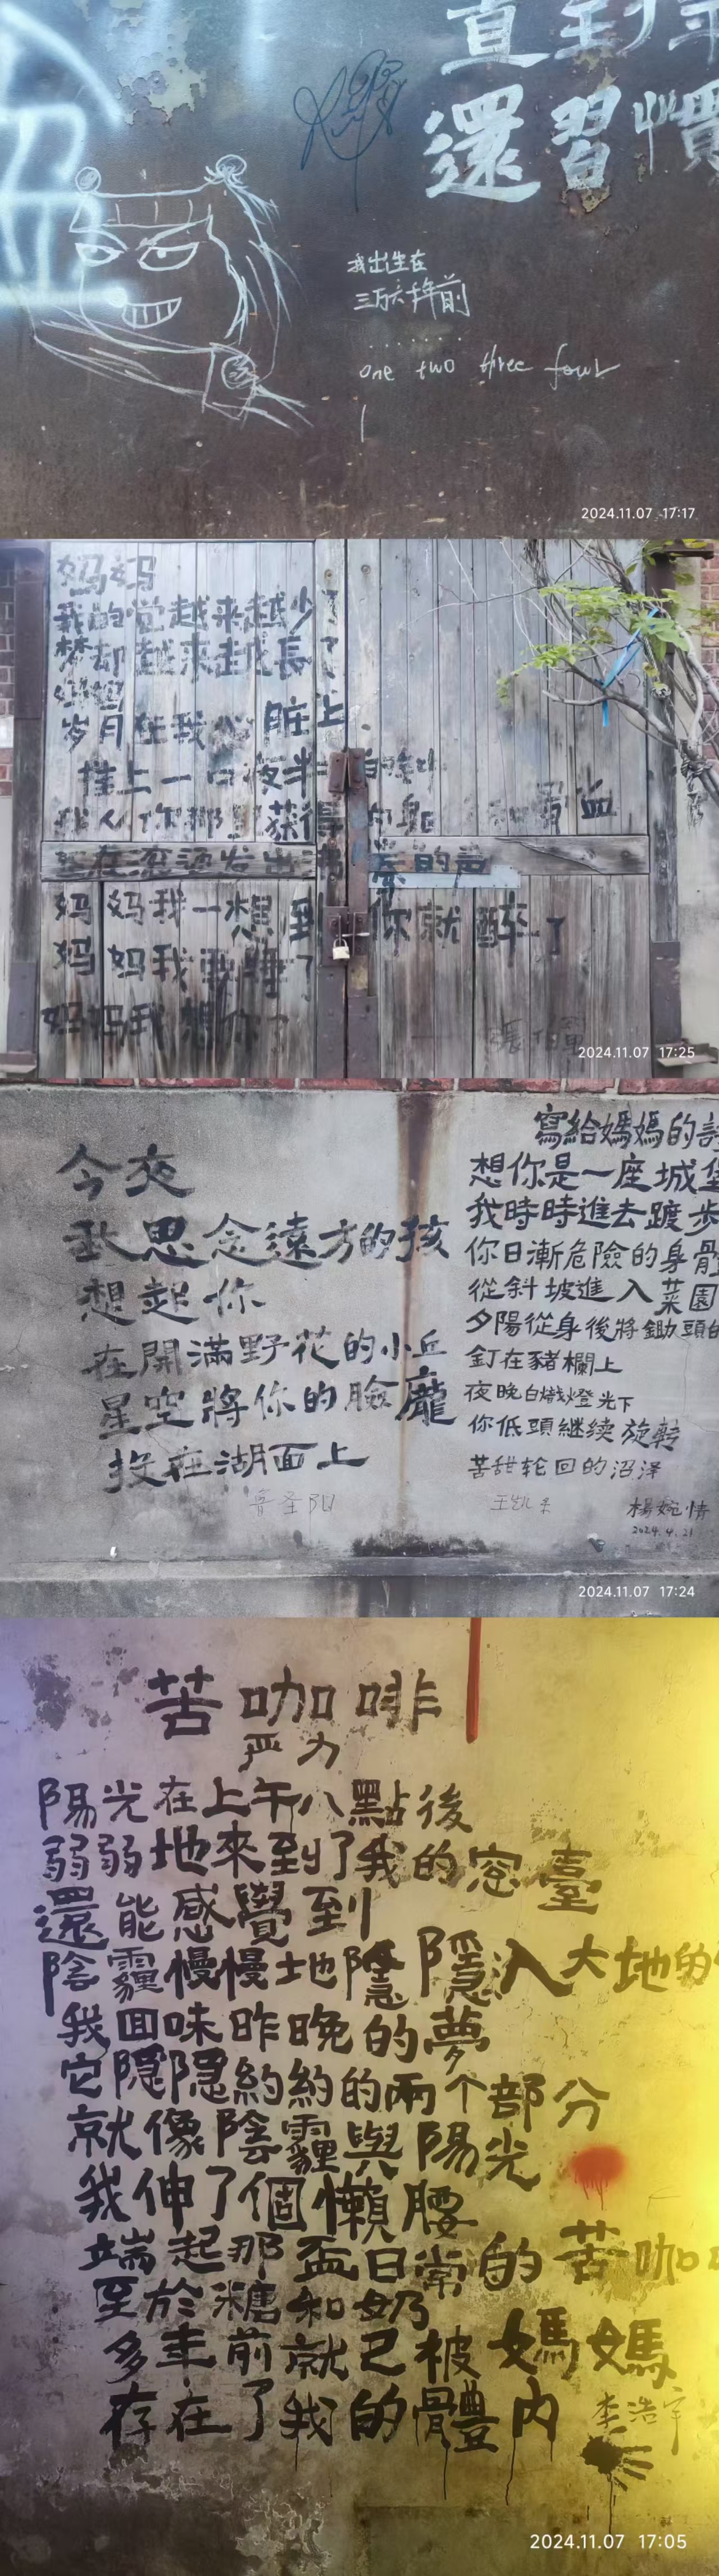 還習慣
我出生在
三万六千年前
.......
one two three four
2024.11.07 17:17
妈妈
我的觉越来越少了
梦却越来越長了
岁月在我心脏上
撞上一口夜半的
我从你那里获得的
滚烫发出沸 的声
妈妈我一想到你就醉了
妈妈我要睡了
妈妈我想你
2024.11.07 17:25
今夾
我思念遠方的孩
想起你
在開滿野花的小丘
星空將你的臉龐
投在湖面上
寫給媽媽的詩
想你是一座城堡
我時時進去踱步
你日漸危險的身骨
從斜坡進入菜園
夕陽從身後將鋤頭的
釘在豬欄上
夜晚白熾燈光下
你低頭継续旋转
苦甜轮回的沼泽
楊婉情
2024.4.21
2024.11.07 17:24
苦咖啡
严力
陽光在上午八點後
弱弱地來到了我的窓臺
還能感覺到
陰霾慢慢地隱隱入大地的
我回味昨晚的夢
它隱隱約約的兩个部分
就像陰霾與陽光
我伸了個懶腰
端起那盃日常的苦咖
至於糖和奶
多年前就已被媽媽
存在了我的體內
李浩宇
2024.11.07 17:05